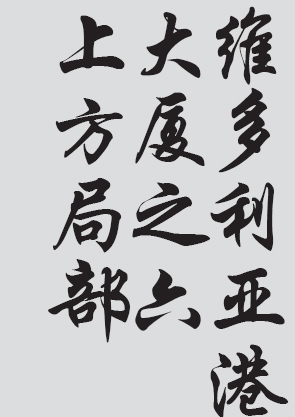 维多利亚港
大厦之六
上方局部